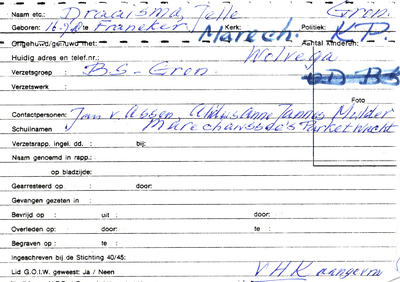 Naam etc.: Draaisma, Jelle Gron.
Geboren: 16. te Franeker Kerk: Politiek: K.P.
Marech.
Ongehuwd/gehuwd met: Aantal Kinderen:
Huidig adres en telef.nr.: Wolvega
Verzetsgroep : B.S - Gron O.D. B.S
Verzetswerk :
Foto
Contactpersonen: Jan v. Assen, Jannes Mulder
Schuilnaam Marechaussee's Parket Wacht
Verzetsrapp. ingel. dd. : bij:
Naam genoemd in rapp.:
op bladzijde:
Gearresteerd op : door:
Gevangen gezeten in :
Bevrijd op : uit : door:
Overleden op : door: te :
Begraven op : te :
Ingeschreven bij de Stichting 40/45:
Lid G.O.I.W. geweest: Ja / Neen V.H.K aangevr